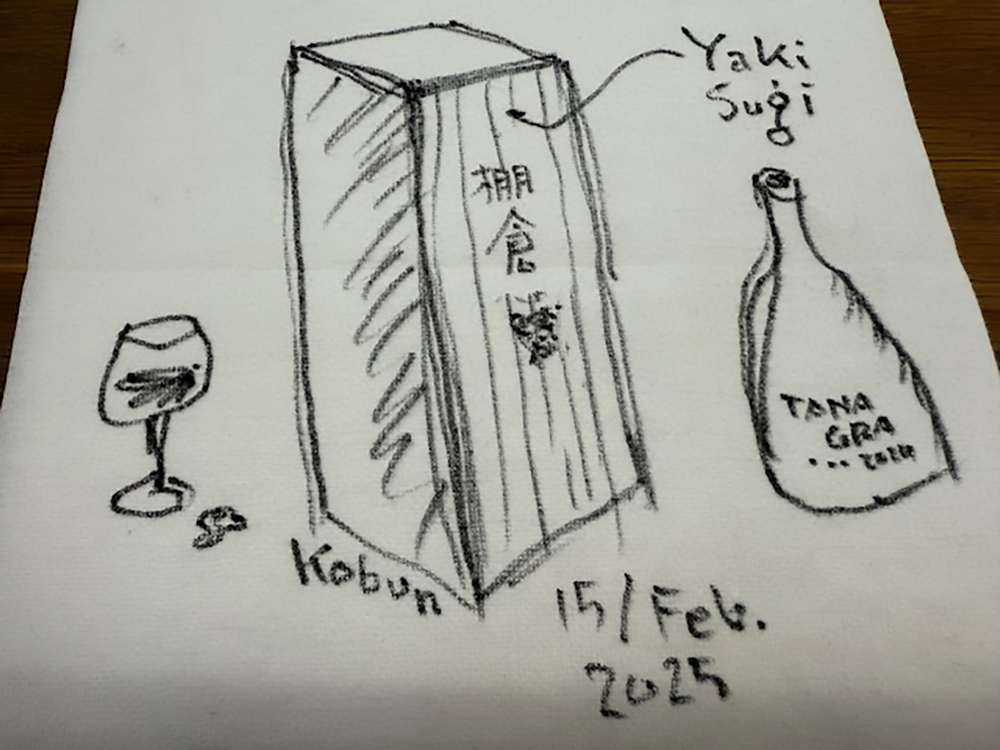 Yaki
Sugi
棚
倉
TANA
GRA
... 2024
Kobun
15/Feb.
2025